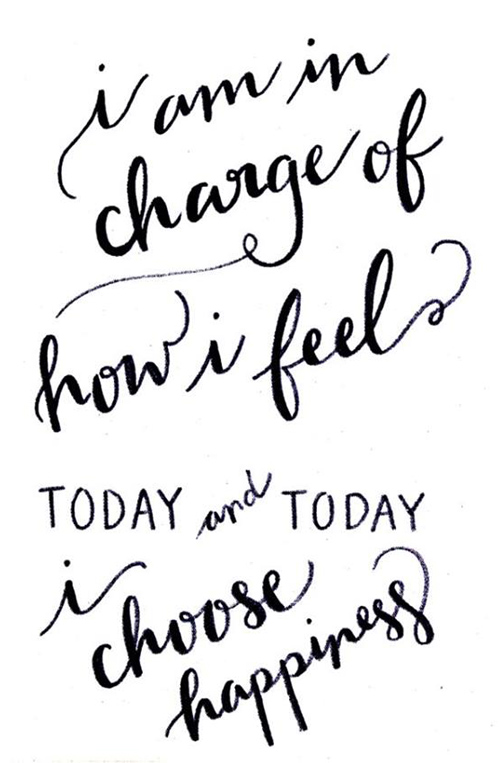 i am in
charge of
how i feel
TODAY and TODAY
i
choose
happiness